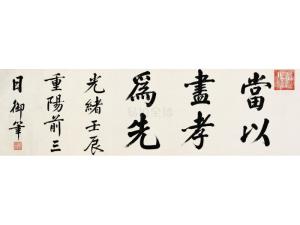 當以
盡孝
爲先
光緒壬辰
重陽前三
日御筆